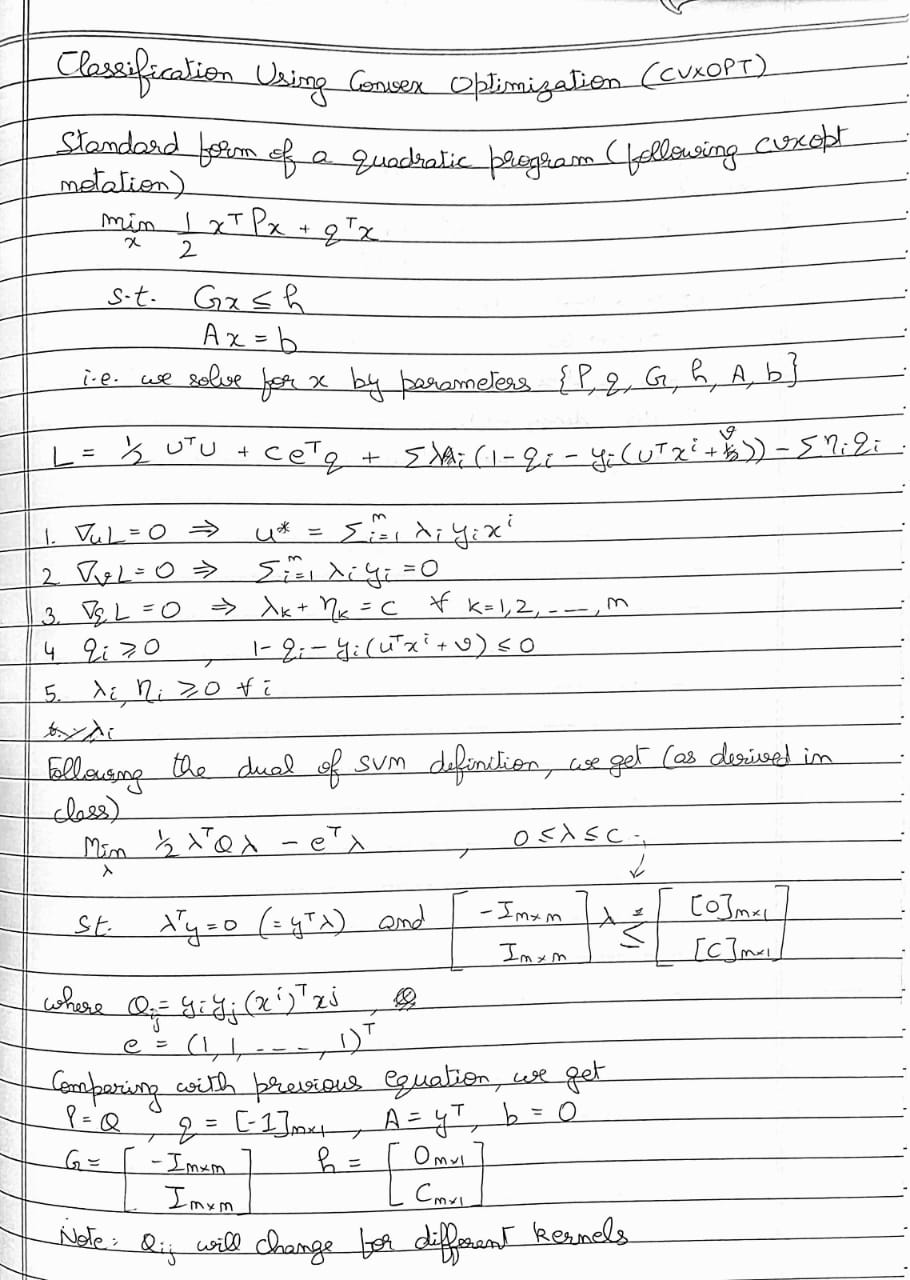 Classification Using Convex Optimization (CVXOPT)
Standard form of a quadratic program (following cvxopt
notation)
min_x 1/2 xᵀPx + qᵀx
s.t. Gx ≤ h
Ax = b
i.e. we solve for x by parameters {P, q, G, h, A, b}
L = ½ uᵀu + ceᵀq + Σλi(1 - qi - yi(uᵀxⁱ + v)) - Σηiqi
1. ∇uL = 0 ⇒ u* = Σᵢ₌₁ᵐ λi yi xⁱ
2 ∇vL = 0 ⇒ Σᵢ₌₁ᵐ λi yi = 0
3. ∇qL = 0 ⇒ λk + ηk = c ∀ k = 1, 2, ---, m
4 qi ≥ 0 , 1 - qi - yi(uᵀxⁱ + v) ≤ 0
5. λi, ηi ≥ 0 ∀ i
Following the dual of SVM definition, we get (as derived in
class)
Min_λ ½ λᵀQλ - eᵀλ , 0 ≤ λ ≤ c
↓
St. λᵀy = 0 (= yᵀλ) and [-I_{m×m} ; I_{m×m}] λ ≤ [[0]_{m×1} ; [C]_{m×1}]
where Q_{ij} = yi yj (xⁱ)ᵀxʲ ,
e = (1, 1, ---, 1)ᵀ
Comparing with previous equation, we get
P = Q , q = [-1]_{m×1} , A = yᵀ , b = 0
G = [-I_{m×m} ; I_{m×m}] h = [0_{m×1} ; C_{m×1}]
Note: Q_{ij} will change for different kernels